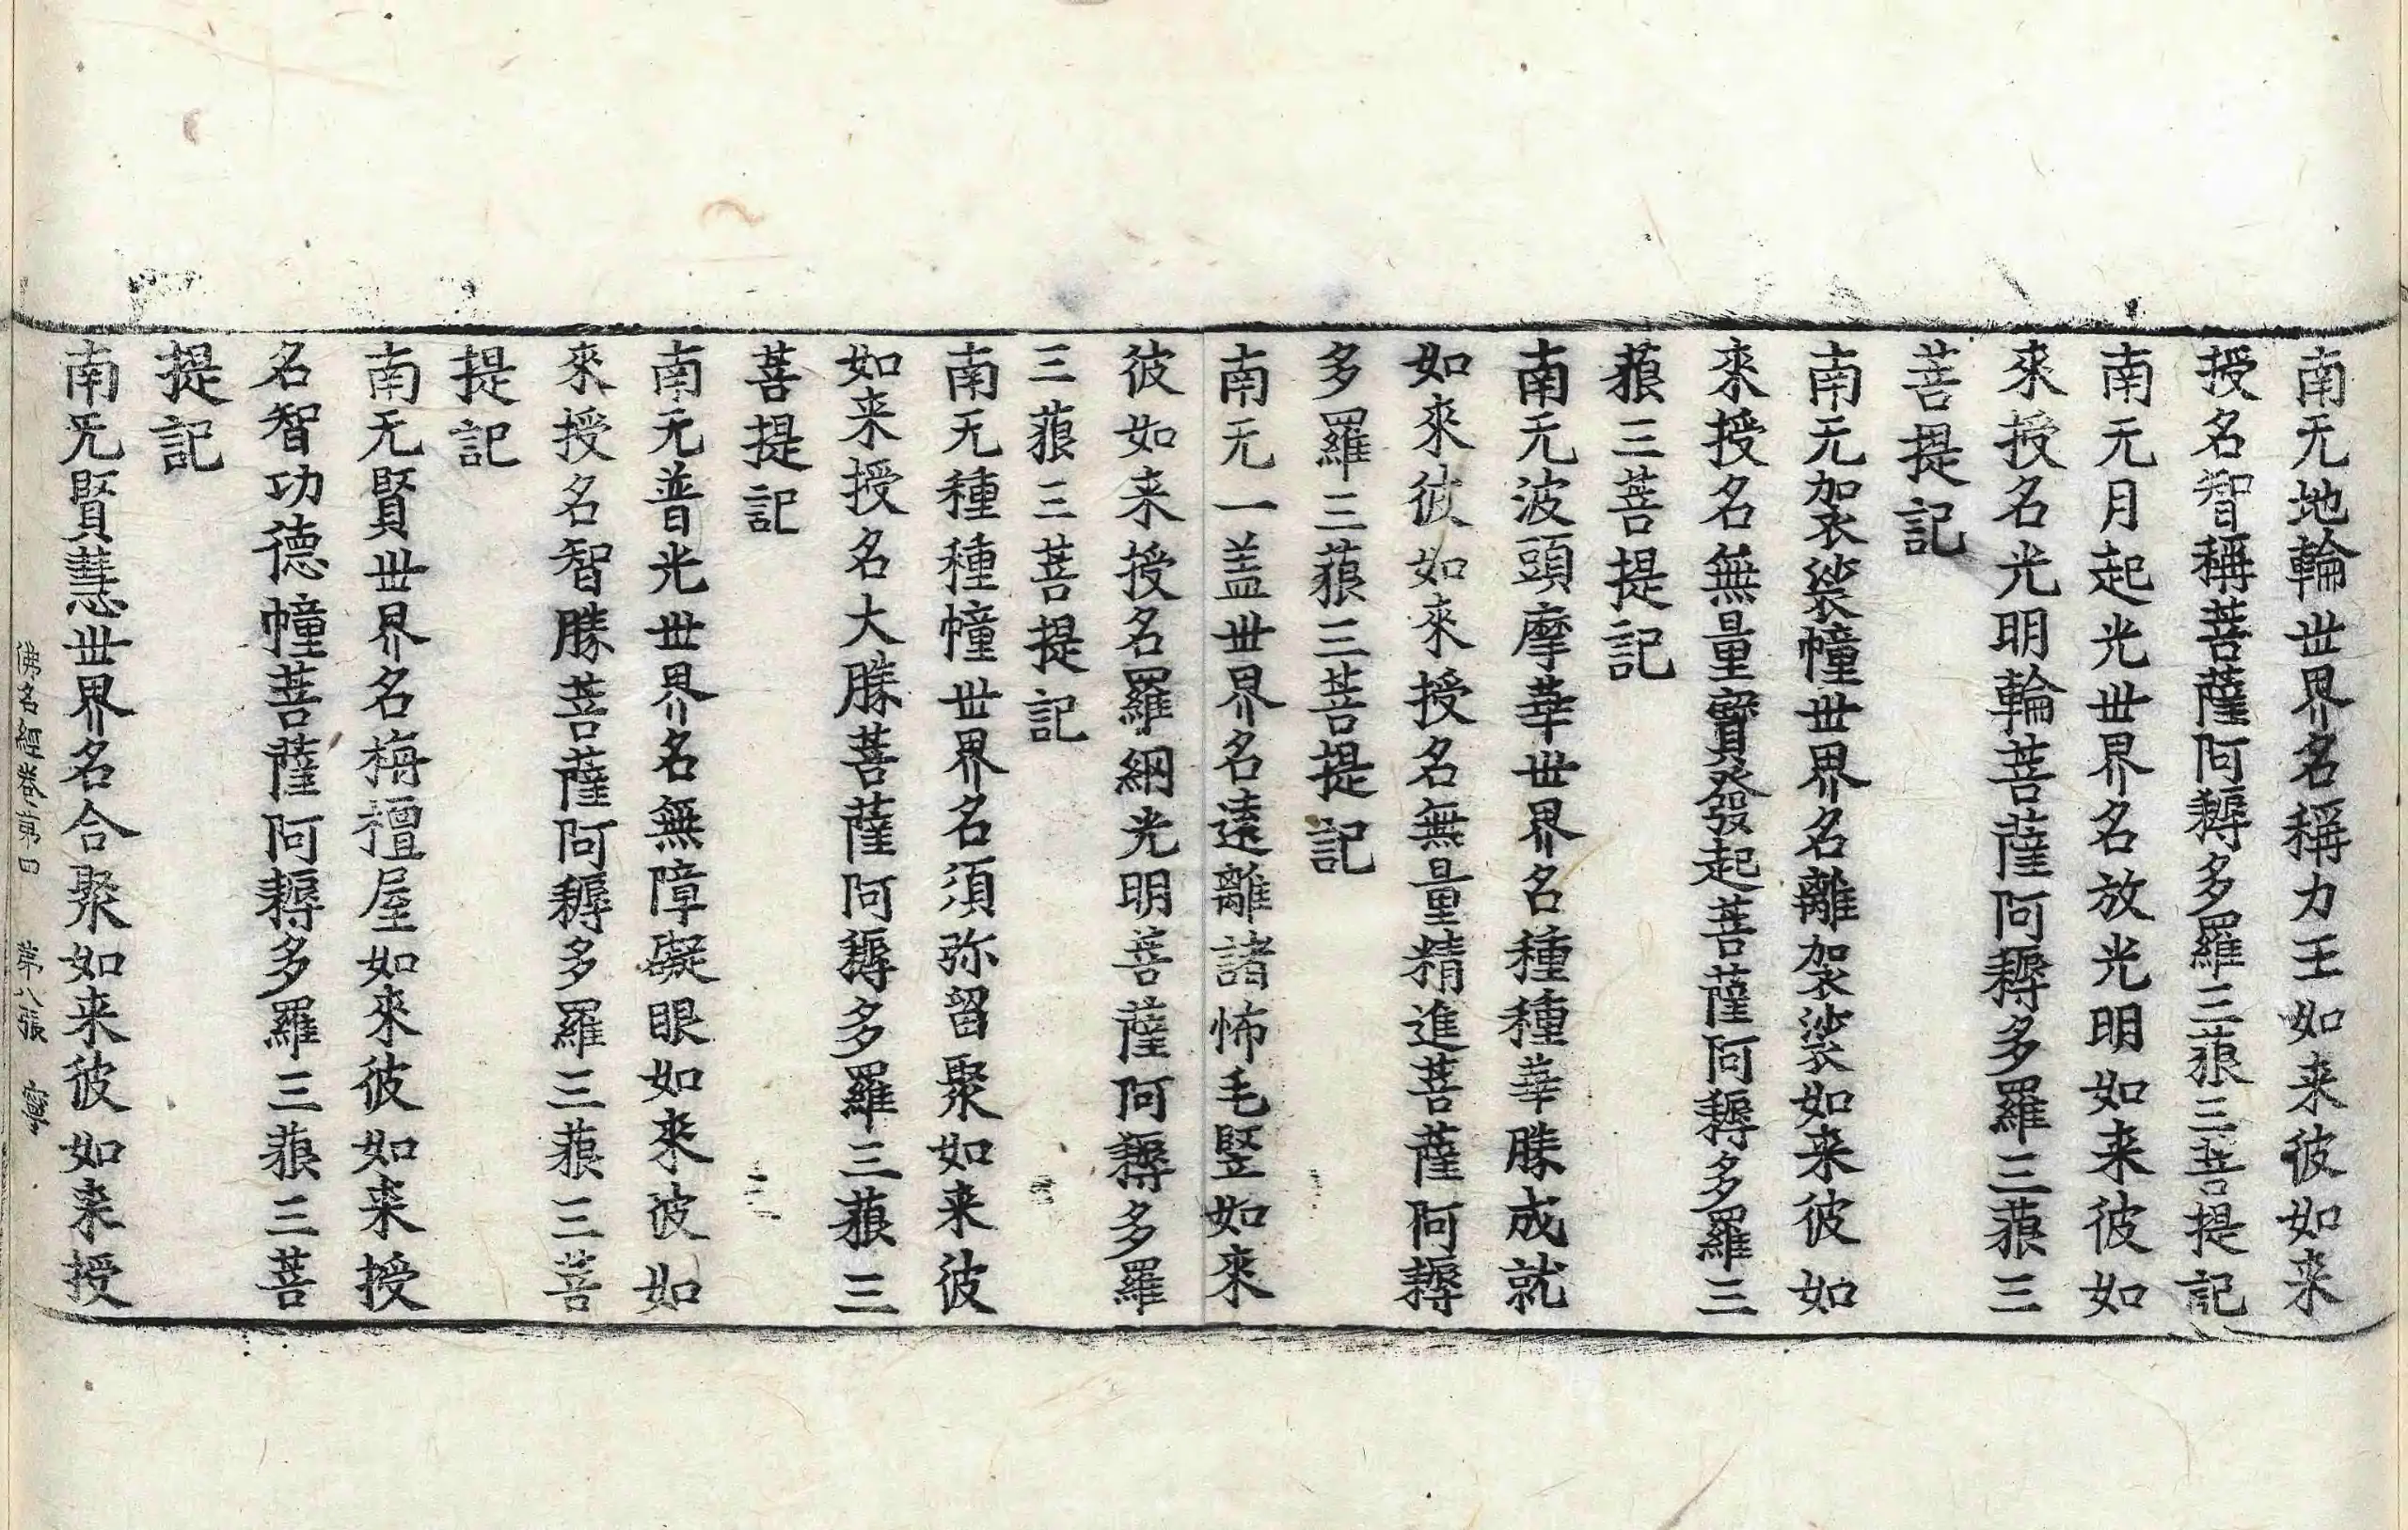 南无地輪世界名稱力王如来彼如来
授名智稱菩薩阿耨多羅三藐三菩提記
南无月起光世界名放光明如来彼如
來授名光明輪菩薩阿耨多羅三藐三
菩提記
南无袈裟幢世界名離袈裟如来彼如
來授名無量寶發起菩薩阿耨多羅三
藐三菩提記
南无波頭摩華世界名種種華勝成就
如來彼如來授名無量精進菩薩阿耨
多羅三藐三菩提記
南无一盖世界名遠離諸怖毛竪如來
彼如来授名羅網光明菩薩阿耨多羅
三藐三菩提記
南无種種幢世界名須弥留聚如来彼
如来授名大勝菩薩阿耨多羅三藐三
菩提記
南无普光世界名無障礙眼如来彼如
來授名智勝菩薩阿耨多羅三藐三菩
提記
南无賢世界名栴檀屋如來彼如来授
名智功德幢菩薩阿耨多羅三藐三菩
提記
南旡賢慧世界名合聚如来彼如来授
佛名經卷第四 第八張 寧